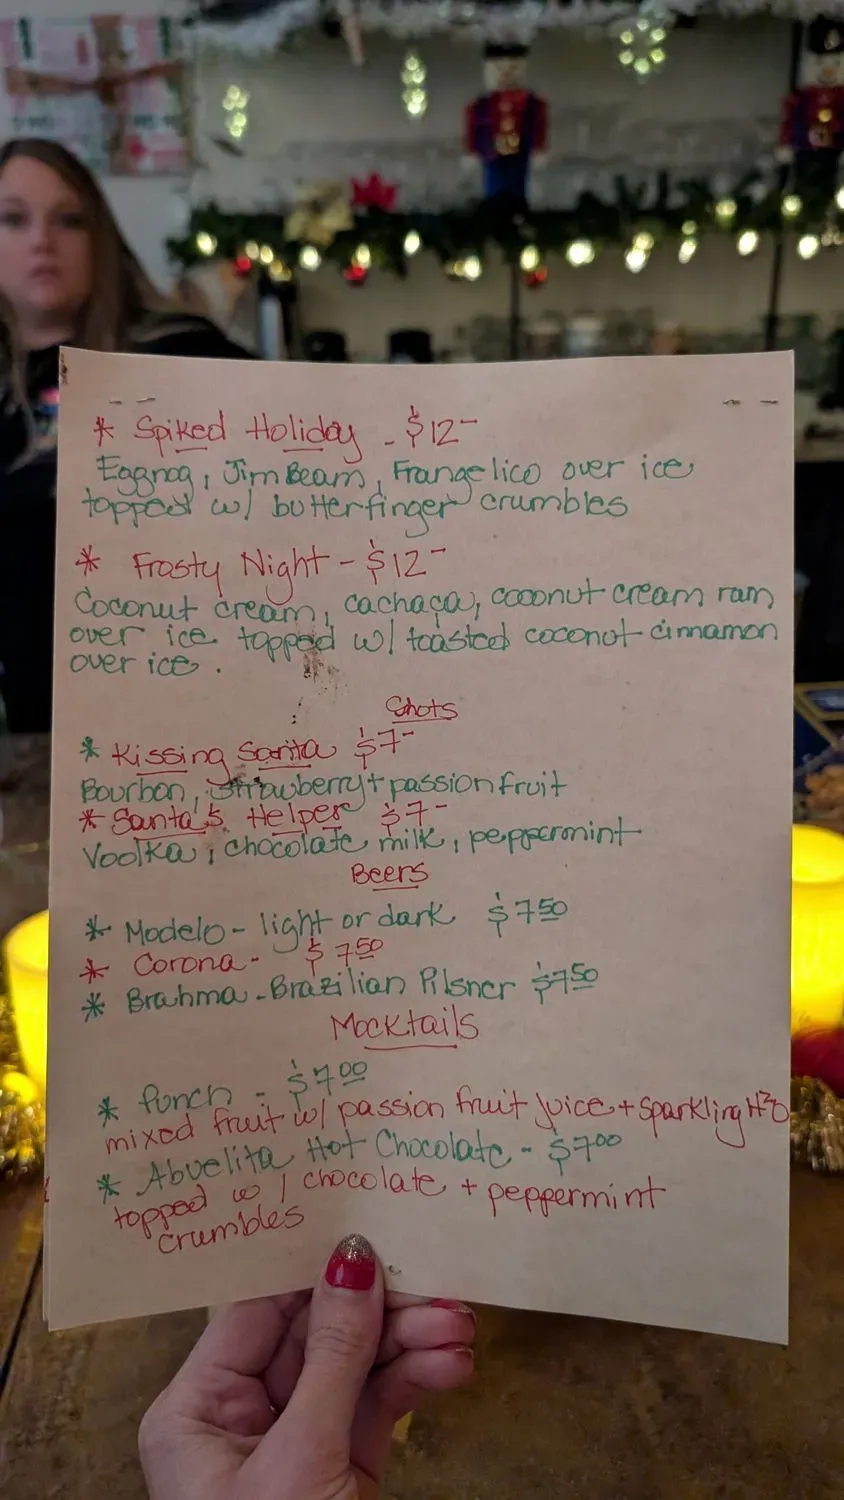 * Spiked Holiday - $12-
Eggnog, Jim Beam, Frangelico over ice
topped w/ butterfinger crumbles
* Frosty Night - $12-
Coconut cream, cachaça, coconut cream ram
over ice topped w/ toasted coconut cinnamon
over ice.
Shots
* Kissing Santa $7-
Bourbon, strawberry + passion fruit
* Santa's Helper $7-
Vodka, chocolate milk, peppermint
Beers
* Modelo - light or dark $7.50
* Corona - $7.50
* Brahma - Brazilian Pilsner $7.50
Mocktails
* Punch - $7.00
mixed fruit w/ passion fruit juice + sparkling H2O
* Abuelita Hot Chocolate - $7.00
topped w/ chocolate + peppermint
crumbles